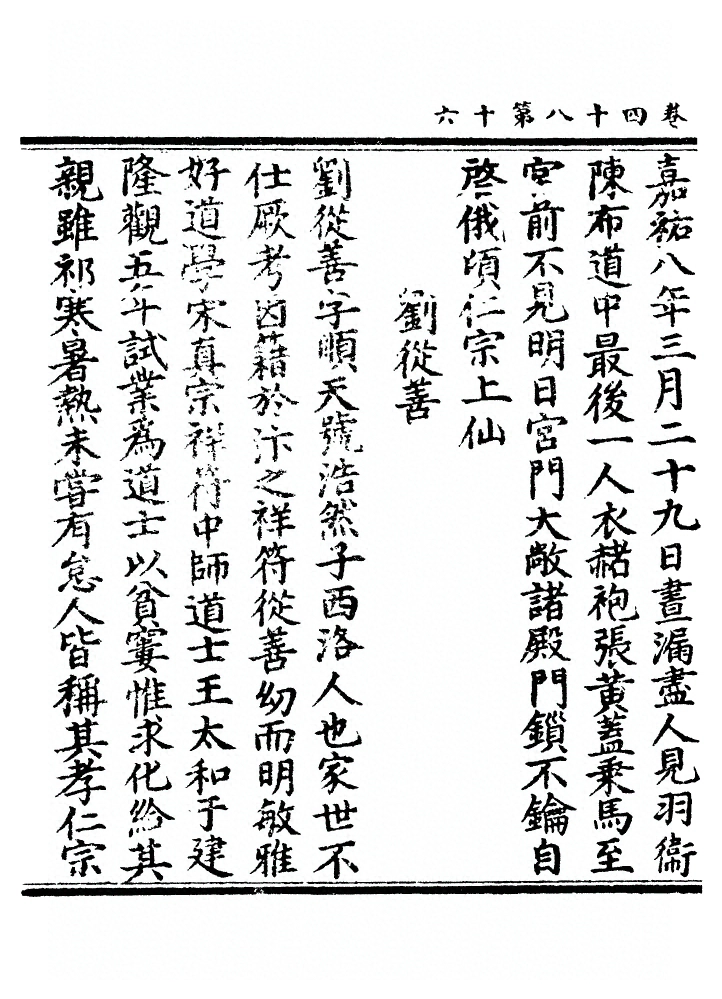 卷四十八第十六
嘉祐八年三月二十九日晝漏盡人見羽衛
陳布道中最後一人衣赭袍張黃蓋乘馬至
宮前不見明日宮門大敞諸殿門鎖不鑰自
啓俄頃仁宗上仙
劉從善
劉從善字順天號浩然子西洛人也家世不
仕厥考因籍於汴之祥符從善幼而明敏雅
好道學宋真宗祥符中師道士王太和于建
隆觀五年試業爲道士以貧窶惟求化給其
親雖祁寒暑熱未嘗有怠人皆稱其孝仁宗